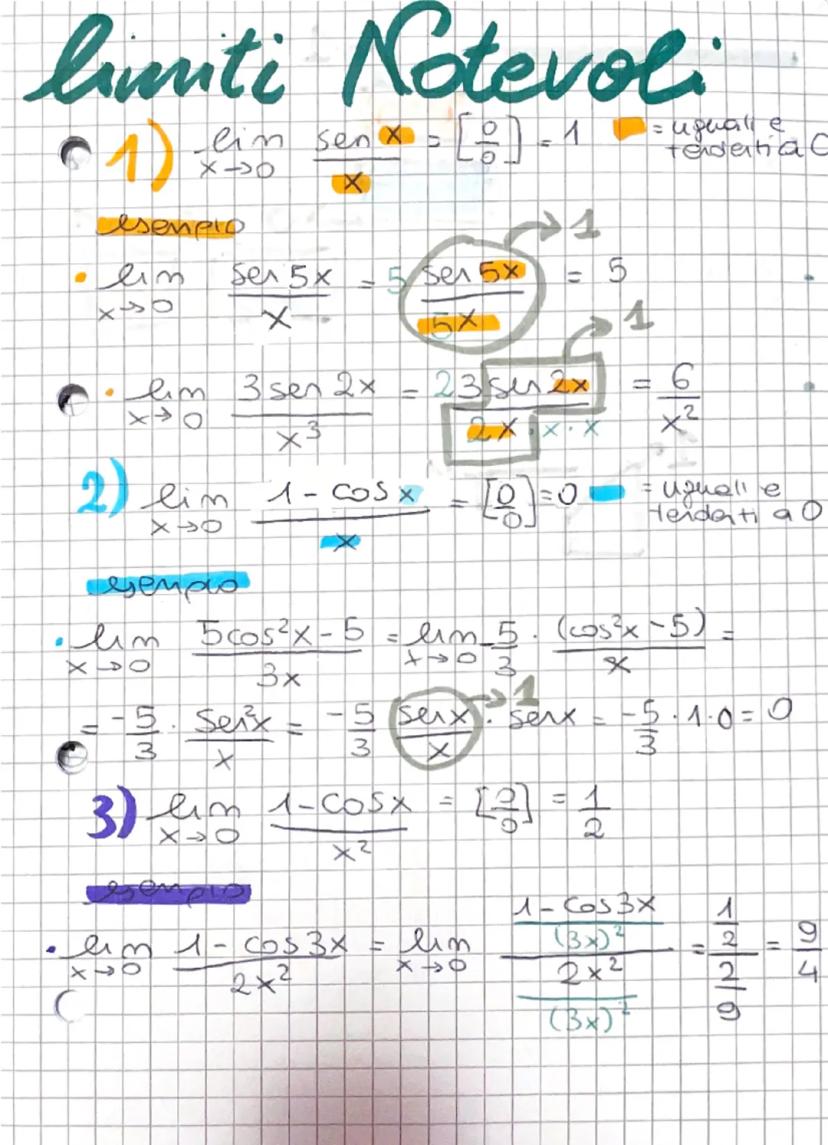 limiti Notevoli
1) lim x→0 sen x / x = [0/0] = 1 = uguali e tendenti a 0
esempio
• lim x→0 sen 5x / x = 5 sen 5x / 5x = 5 → 1
• lim x→0 3 sen 2x / x³ = 2 3 sen 2x / 2x · x · x = 6 / x² → 1
2) lim x→0 1 - cos x / x = [0/0] = 0 = uguali e tendenti a 0
esempio
• lim x→0 5cos²x - 5 / 3x = lim x→0 -5/3 · (cos²x - 5) / x =
= -5/3 · sen²x / x = -5/3 senx / x → 1 · senx = -5/3 · 1 · 0 = 0
3) lim x→0 1 - cosx / x² = [0/0] = 1/2
esempio
• lim x→0 1 - cos 3x / 2x² = lim x→0 1 - cos 3x / (3x)² / 2x² / (3x)² = 1/2 / 2/9 = 9/4